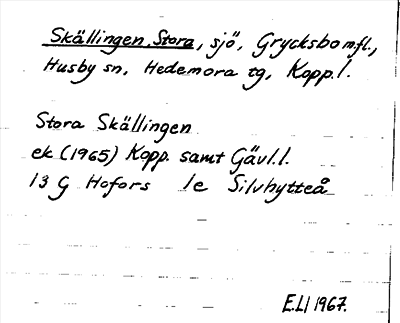 Skällingen, Stora, sjö, Grycksbo m.fl.,
Husby sn, Hedemora tg, Kopp. l.
Stora Skällingen
ek (1965) Kopp. samt Gävl. l.
13 G Hofors 1e Silvhytteå
E.LI 1967.